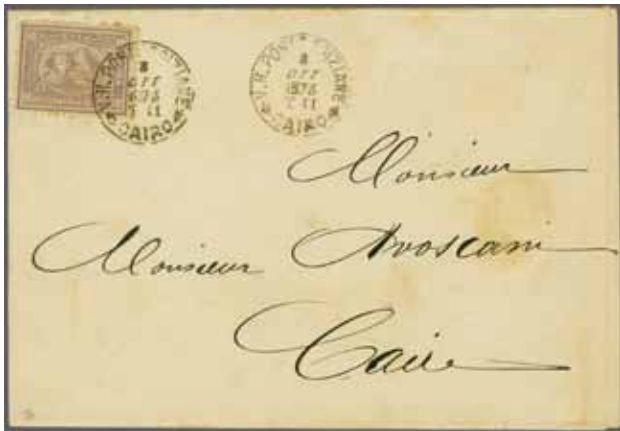 V.R. POSTE EGIZIANE
8
OTT
CAIRO
V.R. POSTE EGIZIANE
8
OTT
CAIRO
Monsieur
Monsieur Avoscani
Caire